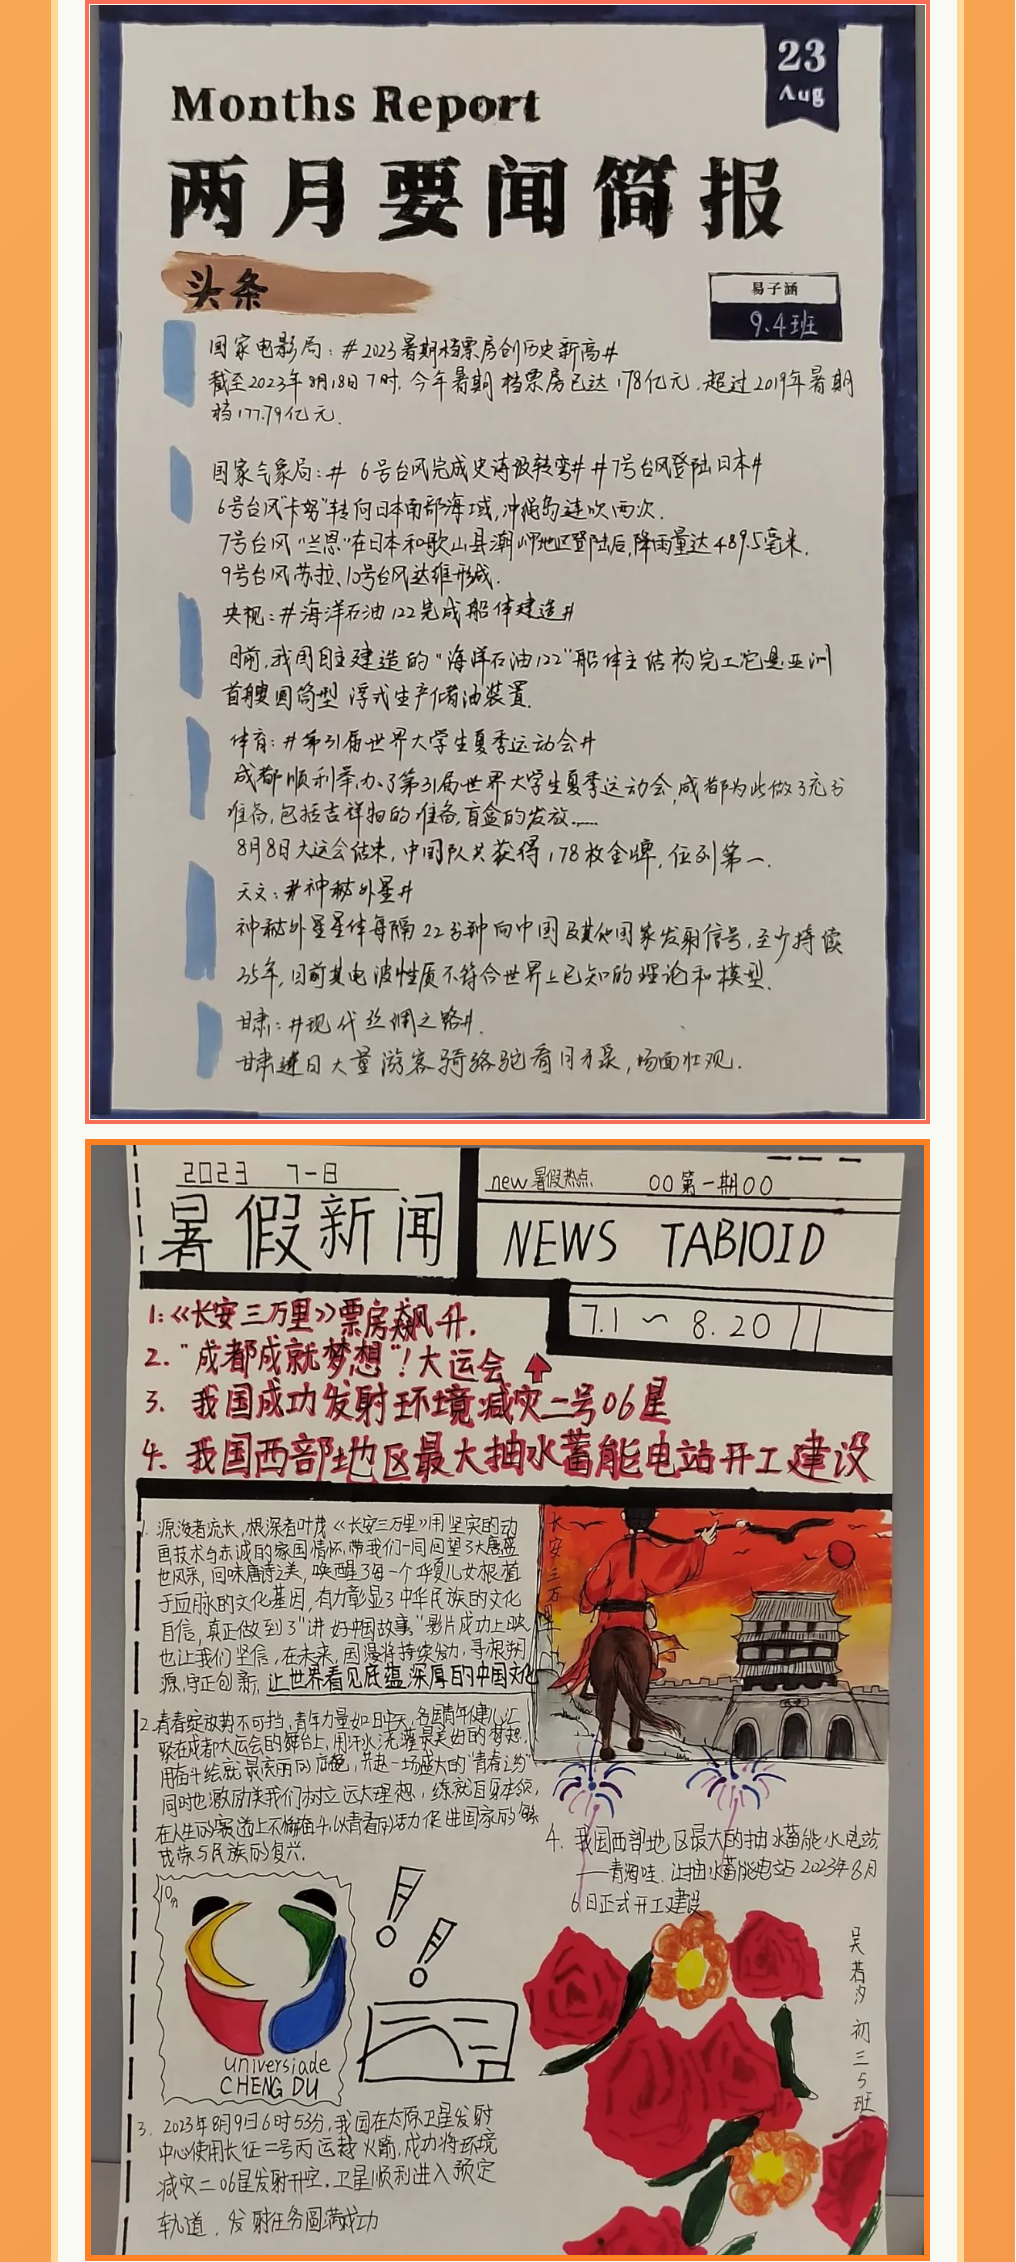 23
Aug
Months Report
两月要闻简报
头条
易子涵
9.4班
国家电影局:#2023暑期档票房创历史新高#
截至2023年8月18日7时,今年暑期档票房已达178亿元,超过2019年暑期
档177.79亿元.
国家气象局:# 6号台风完成史诗级转弯# #7号台风登陆日本#
6号台风“卡努”转向日本南部海域,冲绳岛连吹两次.
7号台风“兰恩”在日本和歌山县潮岬地区登陆后,降雨量达489.5毫米.
9号台风苏拉、10号台风达维形成.
央视:#海洋石油122完成船体建造#
日前,我国自主建造的“海洋石油122”船体主结构完工它是亚洲
首艘圆筒型浮式生产储油装置.
体育:#第31届世界大学生夏季运动会#
成都顺利举办了第31届世界大学生夏季运动会,成都为此做了充分
准备,包括吉祥物的准备,盲盒的发放……
8月8日大运会结束,中国队共获得178枚金牌,位列第一.
天文:#神秘外星#
神秘外星星体每隔22分钟向中国及其他国家发射信号,至少持续
35年,目前其电波性质不符合世界上已知的理论和模型.
甘肃:#现代丝绸之路#.
甘肃进日大量游客骑骆驼看月牙泉,场面壮观.
2023 7-8
暑假新闻
new暑假热点 00第一期00
NEWS TABIOID
7.1 ~ 8.20
1:《长安三万里》票房飙升.
2."成都成就梦想"!大运会
3. 我国成功发射环境减灾二号06星
4. 我国西部地区最大抽水蓄能电站开工建设
1. 源浚者流长,根深者叶茂《长安三万里》用坚实的动
画技术与赤诚的家国情怀,带我们一同回望了大唐盛
世风采,回味唐诗之美,唤醒了每一个华夏儿女根植
于血脉的文化基因,有力彰显了中华民族的文化
自信,真正做到了"讲好中国故事."影片成功上映
也让我们坚信,在未来,国漫将持续发力,寻根溯
源,守正创新,让世界看见底蕴深厚的中国文化
长安三万里
2.青春绽放势不可挡,青年力量如日中天,各国青年健儿汇
聚在成都大运会的舞台上,用汗水浇灌最美的梦想,
用奋斗绘就最亮丽的底色,共赴一场盛大的"青春之约"
同时也激励我们树立远大理想,练就自身本领,
在人生的赛道上不懈奋斗,以青春的活力促进国家的繁
荣与民族的复兴.
4. 我国西部地区最大的抽水蓄能水电站
——青海哇让抽水蓄能电站2023年8月
6日正式开工建设
10分
universiade
CHENG DU
吴若汐 初三5班
3. 2023年8月9日6时53分,我国在太原卫星发射
中心使用长征二号丙运载火箭,成功将环境
减灾二06星发射升空.卫星顺利进入预定
轨道,发射任务圆满成功